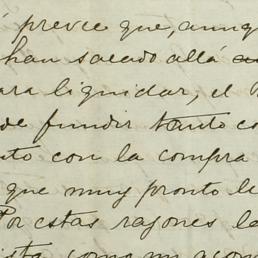 prevee que, aunq
han sacado allá
ara liquidar, el
de fundir tanto co
to con la compra
que muy pronto le
Por estas razones la
ista como un acom